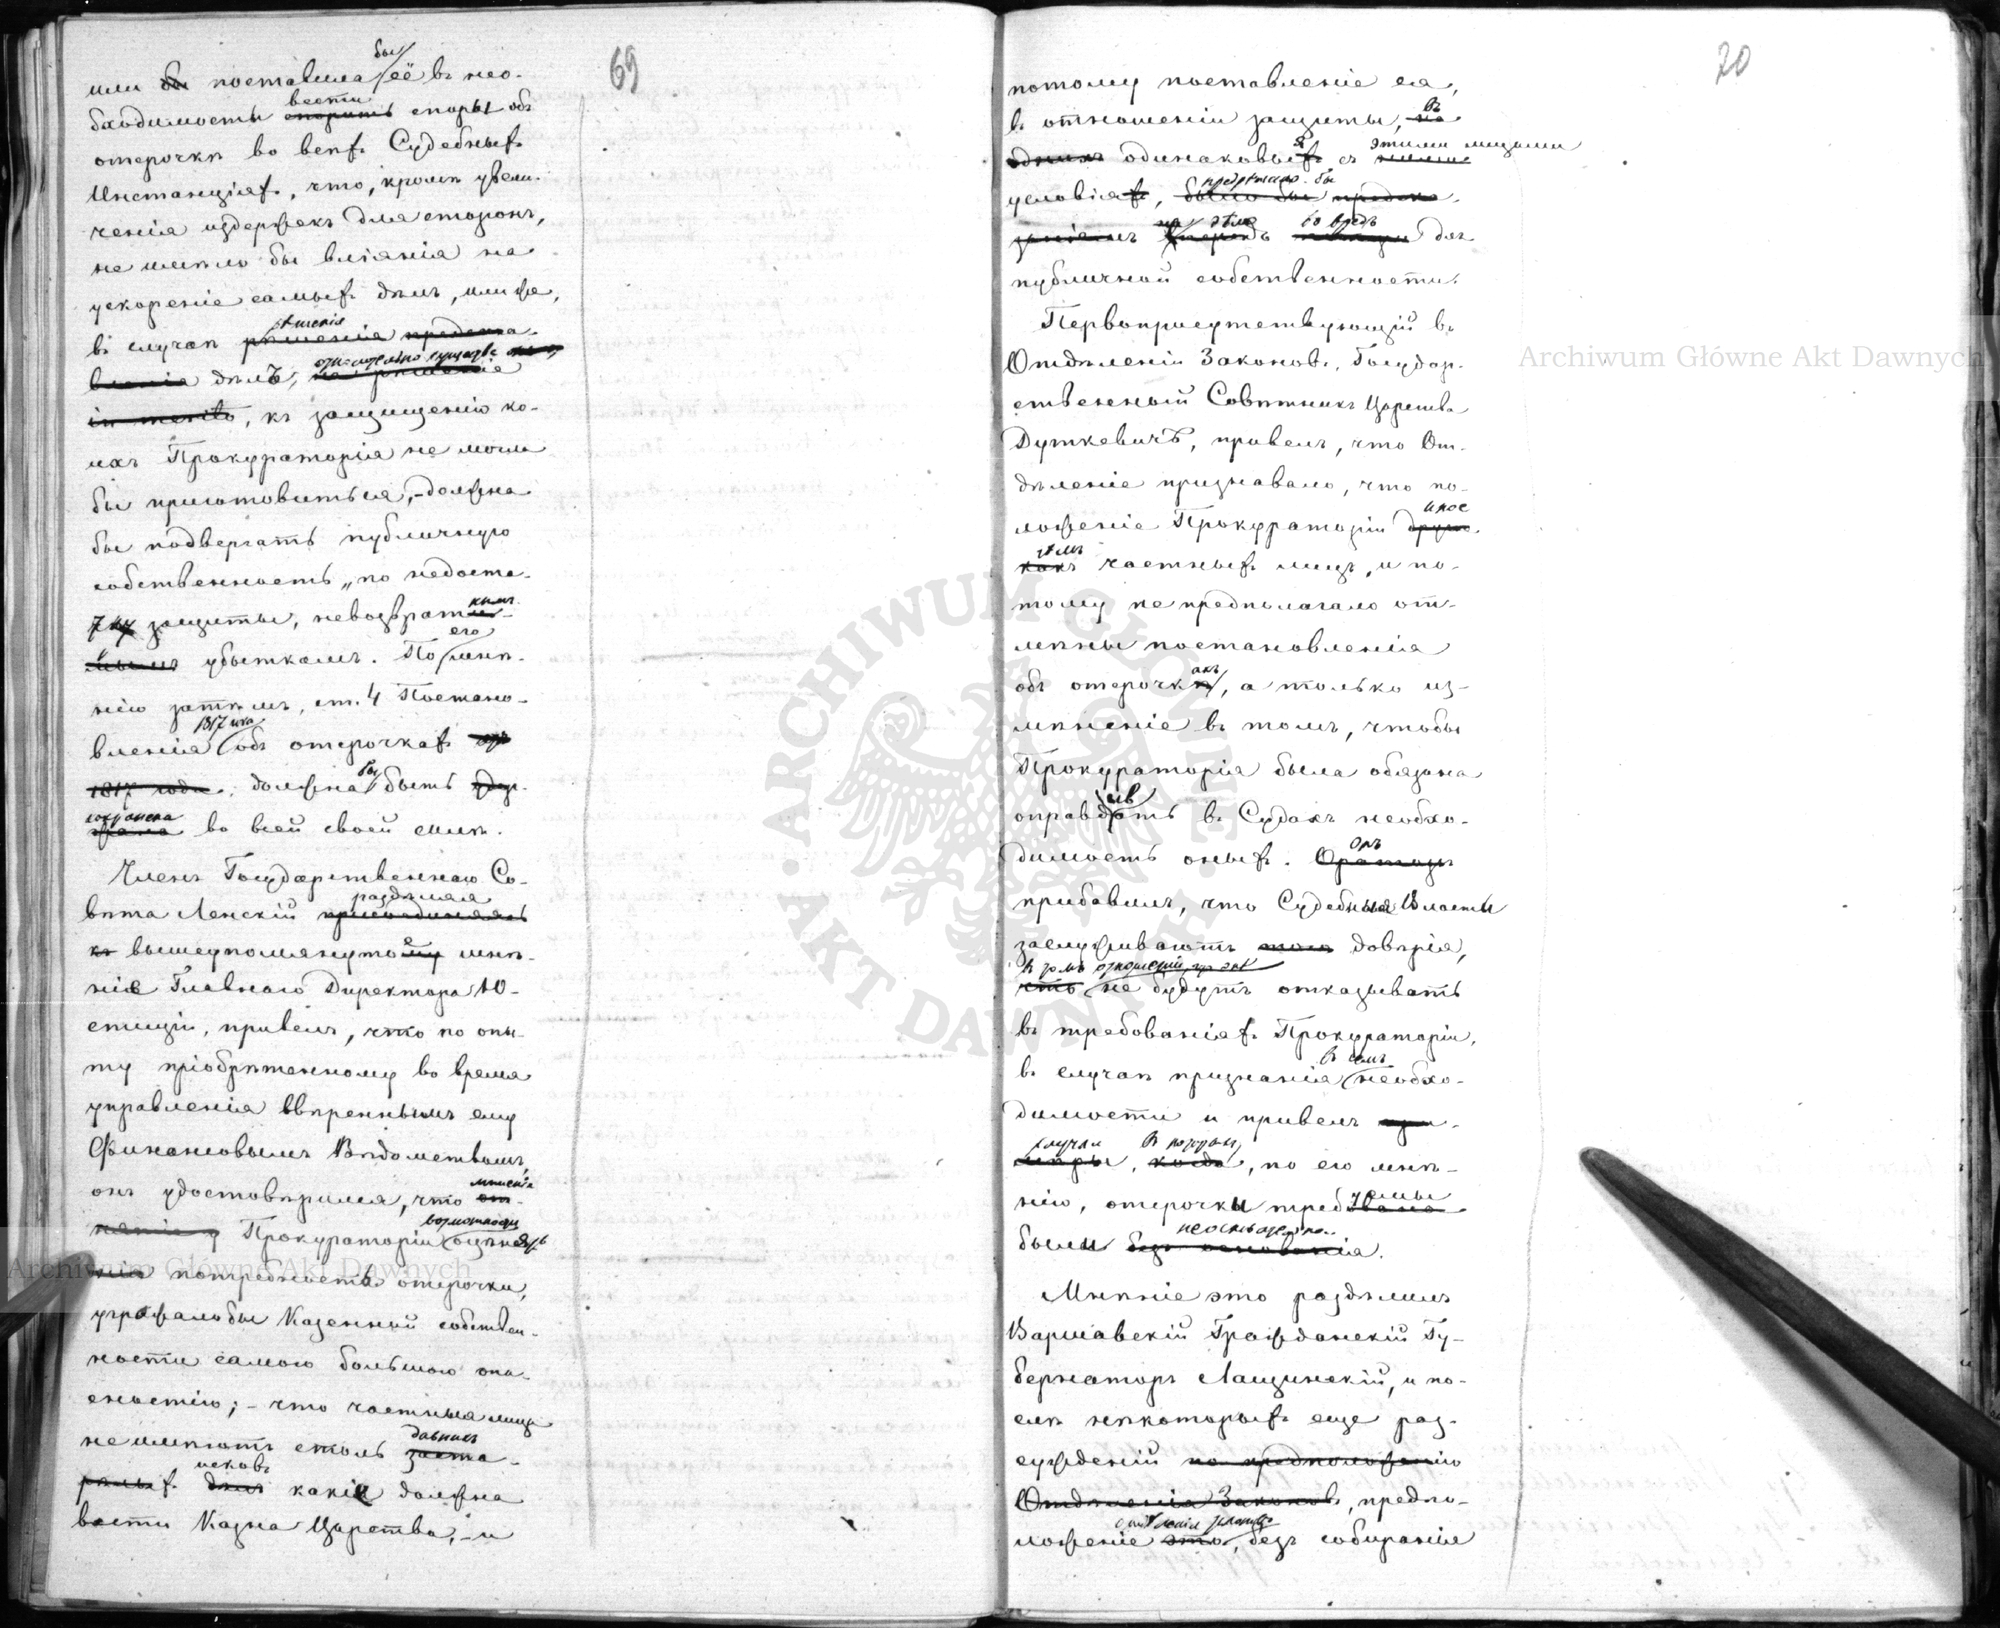 69
или бы поставила бы её въ нео-
бходимость вести спорить споры объ
отсрочкѣ во всѣхъ Судебныхъ
Инстанціяхъ, что, кромѣ увели-
ченія издержекъ для сторонъ,
не имѣло бы вліянія на
ускореніе самыхъ дѣлъ, или же,
въ случаѣ рѣшенія рѣшенія предста-
вленія дѣлъ, относительно существа на рѣшеніе
in merito, къ защищенію ко-
ихъ Прокураторія не могла
бы приготовиться, – должна
бы подвергать публичную
собственность, по недоста-
тку защиты, невозврат-
нымъ убыткамъ. По его мнѣ-
нію затѣмъ, ст. 4 Постано-
вленія 1817 года объ отсрочкахъ
1817 года, должна бы быть удер-
жана сохранена во всей своей силѣ.
Членъ Государственнаго Со-
вѣта Ленскій раздѣляя присоединяясь
къ вышеупомянутому мнѣ-
ніе Главнаго Директора Ю-
стиціи, привелъ, что по опы-
ту пріобрѣтенному во время
управленія ввѣреннымъ ему
Финансовымъ Вѣдомствомъ,
онъ удостовѣрился, что лишеніе от-
нятіе у Прокураторіи возможности оцѣнять
потребность отсрочки,
угрожало бы Казенной собствен-
ности самою большою опа-
сностію; – что частныя лица
не имѣютъ столь давнихъ заста-
рѣлыхъ исковъ дѣлъ какія должна
вести Казна Царства, – и
70
потому поставленіе ея,
въ отношеніи защиты, въ на
однихъ одинаковыя съ этими лицами ними
условія, предрѣшило бы было бы
на дѣлѣ во вредъ для
публичной собственности.
Первоприсутствующій въ
Отдѣленіи Законовъ, Государ-
ственный Совѣтникъ Царства
Дуткевичъ, привелъ, что От-
дѣленіе признавало, что по-
ложеніе Прокураторіи иное друго
чѣмъ какъ частныхъ лицъ, и по-
тому не предполагало от-
мѣны постановленія
объ отсрочкахъ, а только из-
мѣненіе въ томъ, чтобы
Прокураторія была обязана
оправдывать въ Судахъ необхо-
димость оныхъ. Онъ Ораторъ
прибавилъ, что Судебныя Власти
заслуживаютъ того довѣрія,
въ томъ отношеніи, что онѣ
что не будутъ отказывать
въ требованіяхъ Прокураторіи,
въ случаѣ признанія въ семъ необхо-
димости и привелъ при-
мѣры случаи, когда въ которыхъ, по его мнѣ-
нію, отсрочки требуемы
были неосновательно безъ основанія.
Мнѣніе это раздѣлилъ
Варшавскій Гражданскій Гу-
бернаторъ Лащинскій, и по-
слѣ нѣкоторыхъ еще раз-
сужденій по предположенію
Отдѣленія Законовъ, предпо-
ложеніе Отдѣленія Законовъ это, безъ собиранія
Archiwum Główne Akt Dawnych
Archiwum Główne Akt Dawnych
ARCHIWUM GŁÓWNE · AKT DAWNYCH ·